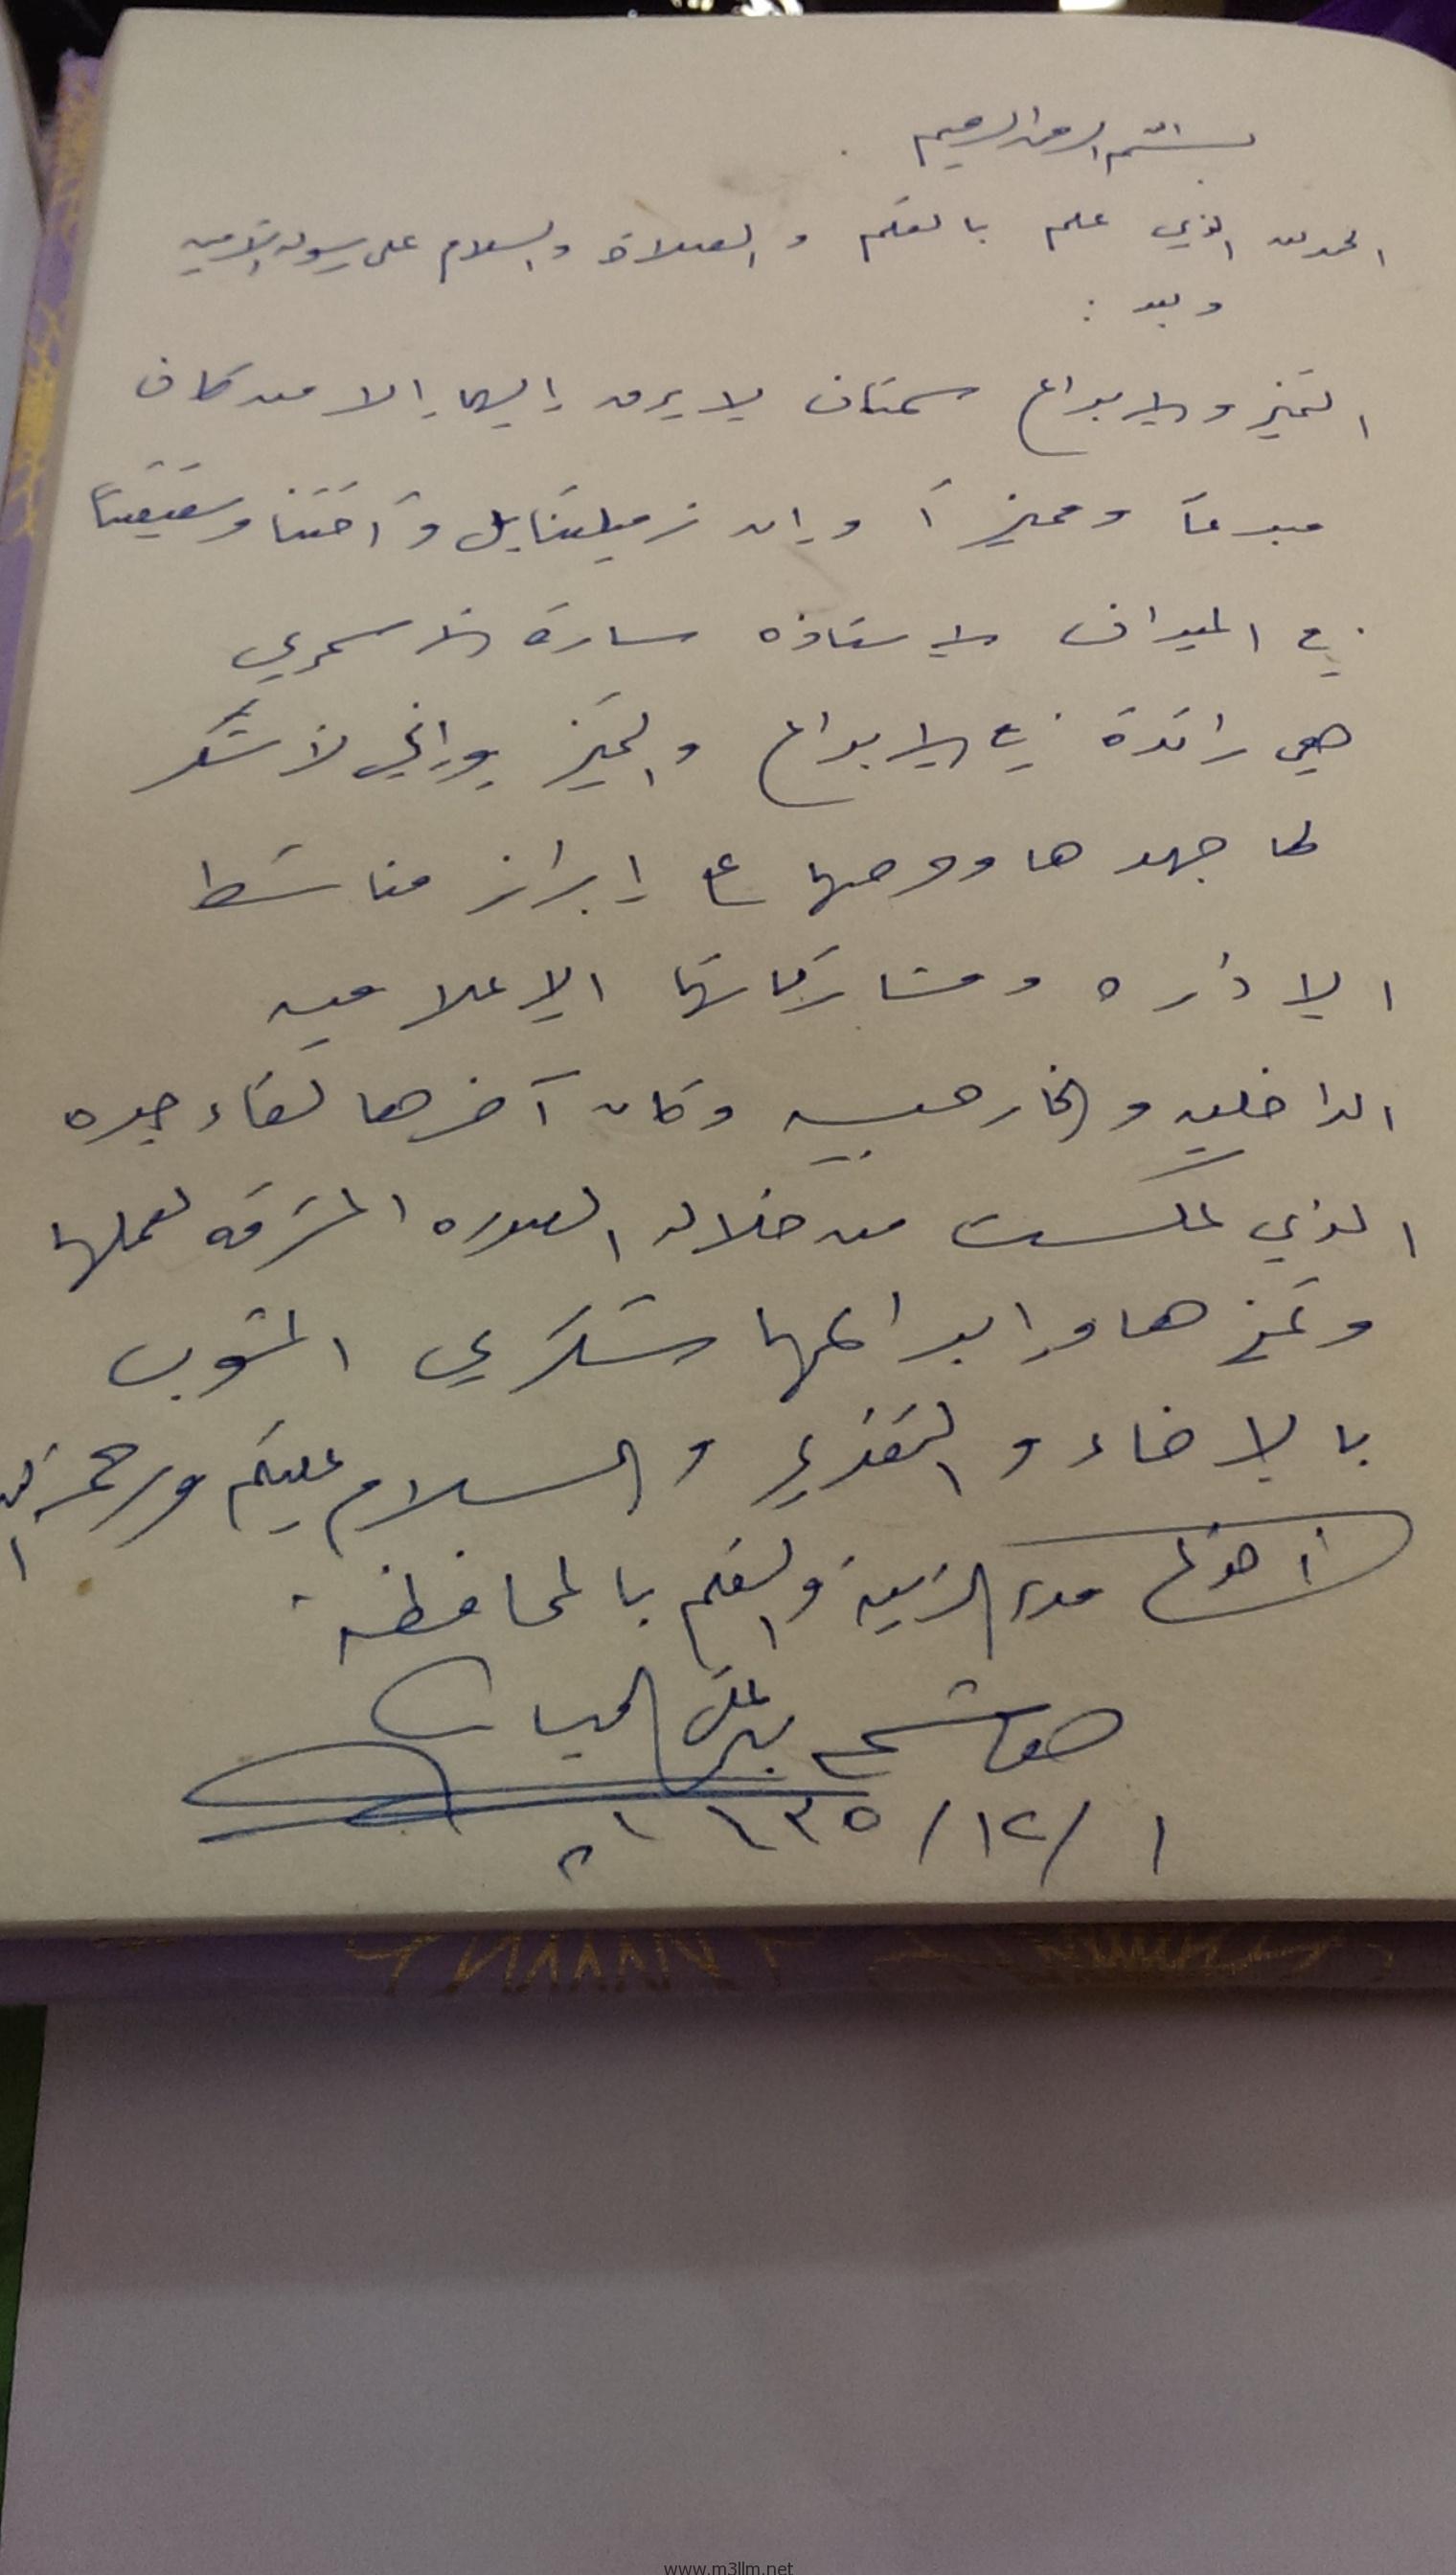 بسم الله الرحمن الرحيم
الحمد لله الذي علم بالقلم والصلاة والسلام على رسوله الأمين
وبعد :
التميز والإبداع سمتان لا يرقى إليها إلا من كان
مبدعاً ومميزاً وإن زميلتنا بل وأختنا وشقيقتنا
في الميدان الاستاذه سارة الأسمري
هي رائدة في الإبداع والتميز وإني لأشكر
لها جهدها وحرصها على إبراز مناشط
الإداره ومشاركاتها الإعلاميه
الداخليه والخارجيه وكان آخرها لقاء جده
الذي عكست من خلاله الصوره المشرقه لعملها
وتميزها وإبداعها شكري المشوب
بالإخاء والتقدير والسلام عليكم ورحمة الله
أخوكم مدير التربية والتعليم بالمحافظة
هاشم الحياني
١ /١٢/ ١٤٣٥ هـ
www.m3llm.net